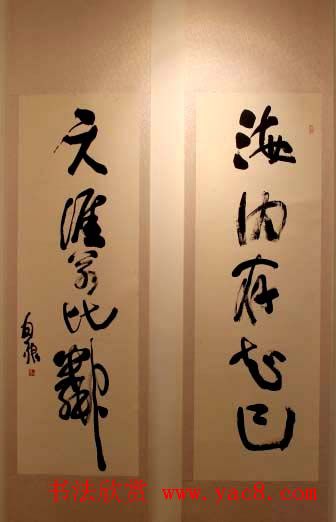 海内存知己
天涯若比鄰
书法欣赏 www.yac8.com